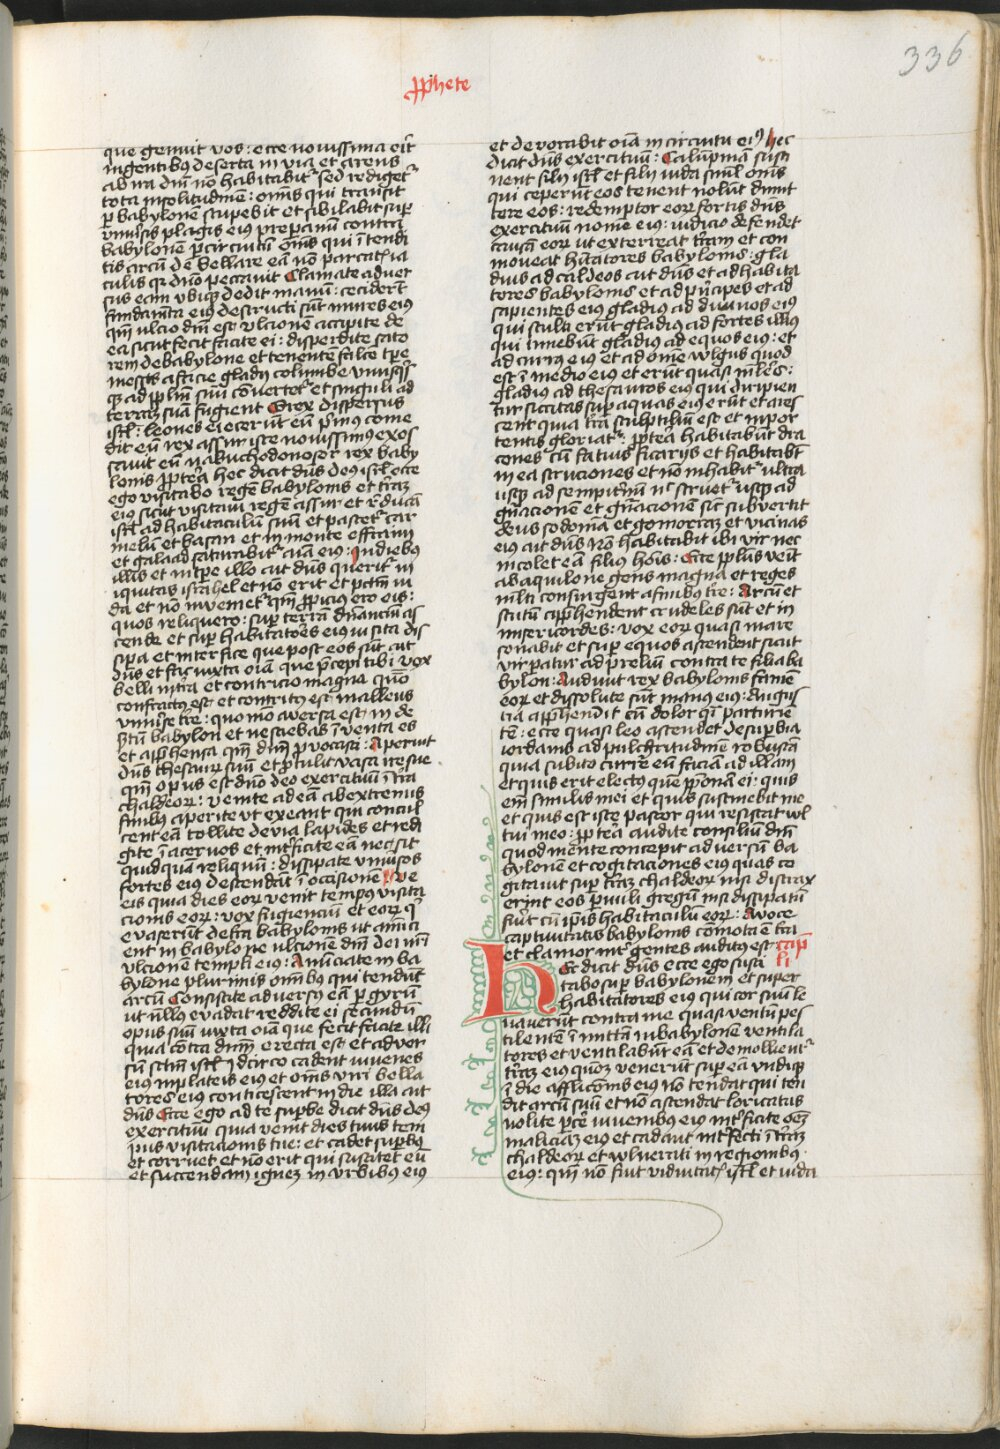 336
Prophete
que genuit vos : ecce novissima erit
in gentibus deserta in via et arens
ab ira dni no habitabit sed rediget
tota in solitudinem : omnis qui transit
p babylone stupebit et sibilabit sup
univsis plagis eius preparamini contra
babylone p circuitu omnes qui tendi
tis arcu debellare ea non parcatis ia
culis qr dno peccavit Clamate adver
sus eam ubiq dedit manum : ceciderut
fundameta eius destructi sunt muri eius
qm ulcio dni est ulcione accipite de
ea sicut fecit facite ei : disperdite sato
rem de babylone et tenente falce tpe
messis a facie gladii columbe unusqs
q ad pplm suu convertet et singuli ad
terram suam fugient Grex dispersus
isrl : leones eiecerut eu primus come
dit eu rex assur iste novissimus exos
savit eu nabuchodonosor rex baby
lonis ppterea hec dicit dns deus isrl ecce
ego visitabo rege babylonis et terram
eius sicut visitavi regem assur et reducam
isrl ad habitaculu suu et pascet car
melu et basan et in monte effraim
et galaad saturabit aia eius : In diebus
illis et in tpe illo ait dns queret in
iquitas israhel et no erit et pctm iu
da et no invenietur qm ppicius ero eis :
quos reliquero : sup terra dominantium as
cende et sup habitatores eius visita dis
sipa et interfice que post eos sunt ait
dns et fac iuxta oia que precepi tibi vox
belli in terra et contricio magna quo
confractus est et contritus est malleus
universe tre : quomodo versa est in de
sertu babylon et nesciebas inventa es
et apprehensa qm dnm provocasti : Aperuit
dns thesauru suu et protulit vasa ire sue
qm opus est dno deo exercituu in terra
chaldeor : venite ad ea ab extremis
finibus aperite ut exeant qui concul
cent ea tollite de via lapides et redi
gite in acervos et interficite ea nec sit
quidqua reliquu : dissipate universos
fortes eius descendat in occisione Ve
eis quia dies eor venit tempus visita
cionis eor : vox fugienciu et eor q
evaserut de terra babylonis ut annuci
ent in babylone ulcione dni dei nri
ulcione templi eius : Annuciate in ba
bylone plurimis omnibus qui tendunt
arcu Consistite adversus ea p gyrum
ut nullus evadat reddite ei secundu
opus suu iuxta oia que fecit facite illi
quia contra dnm erecta est et adver
su sctm isrl Idcirco cadent iuvenes
eius in plateis eius et omnes viri bella
tores eius conticescent in die illa ait
dns Ecce ego ad te superbe dicit dns deus
exercituu quia venit dies tuus tem
pus visitacionis tue : et cadet superbus
et corruet et no erit qui suscitet eu
et succendam ignem in urbibus eius
et devorabit oia in circuitu eius hec
dicit dns exercituu : Calupnia susti
nent filii isrl et filii iuda simul omnes
qui ceperut eos tenent nolut dimit
tere eos : redemptor eor fortis dns
exercituu nome eius : iudicio defendet
causa eor ut exterreat terram et con
moveat habitatores babylonis : gla
dius ad caldeos ait dns et ad habita
tores babylonis et ad principes et ad
sapientes eius gladius ad divinos eius
qui stulti erut gladius ad fortes illius
qui timebut gladius ad equos eius : et
ad currus eius et ad omne wlgus quod
est in medio eius et erut quasi mulieres :
gladius ad thesauros eius qui diripien
tur siccitas sup aquas eius erut et ares
cent quia terra sculptiliu est et in por
tentis gloriatur : propterea habitabut dra
cones cu fatuis ficariis et habitabut
in ea struciones et no inhabitur ultra
usq ad sempiternu nec struetur usq ad
generacionem et generacionem sicut subvertit
deus sodoma et gomorram et vicinas
eius ait dns No habitabit ibi vir nec
incolet ea filius hois : Ecce pplus veit
ab aquilone gens magna et reges
multi consurgent a finibus tre : Arcu et
scutu apprehendent crudeles sut et in
misericordes : vox eor quasi mare
sonabit et sup equos ascendent sicut
vir paratus ad preliu contra te filia ba
bylon : Audivit rex babylonis famem
eor et dissolute sut manus eius : Angus
tia apprehendit eu dolor quasi parturie
te : ecce quasi leo ascendet de superbia
iordanis ad pulchritudine robustam
quia subito currere eu faciam ad illam
et quis erit electus que pponam ei : quis
em similis mei et quis sustinebit me
et quis est iste pastor qui resistat wl
tui meo : ppterea audite consiliu dni
quod mente concepit adversu ba
bylone et cogitaciones eius quas co
gitavit sup terram chaldeor nisi detrax
erint eos parvuli gregum nisi dissipatu
fuerit cu ipsis habitaculu eor : A voce
captivitatis babylonis comota e tra
et clamor inter gentes auditus est cap
Hec dicit dns ecce ego susci li
tabo sup babylonem et super
habitatores eius qui cor suu le
vaverut contra me quasi ventu pes
tilente et mitta in babylone ventila
tores et ventilabut ea et demolientur
terram eius quoniam venerut sup ea undiq
in die afflictionis eius no tendat qui ten
dit arcu suu et no ascendat loricatus
nolite parcere iuvenibus eius interficite omnem
maliciam eius et cadant interfecti in terram
chaldeor et wlnerati in regionibus
eius : qm non fuit viduatus isrl et iuda